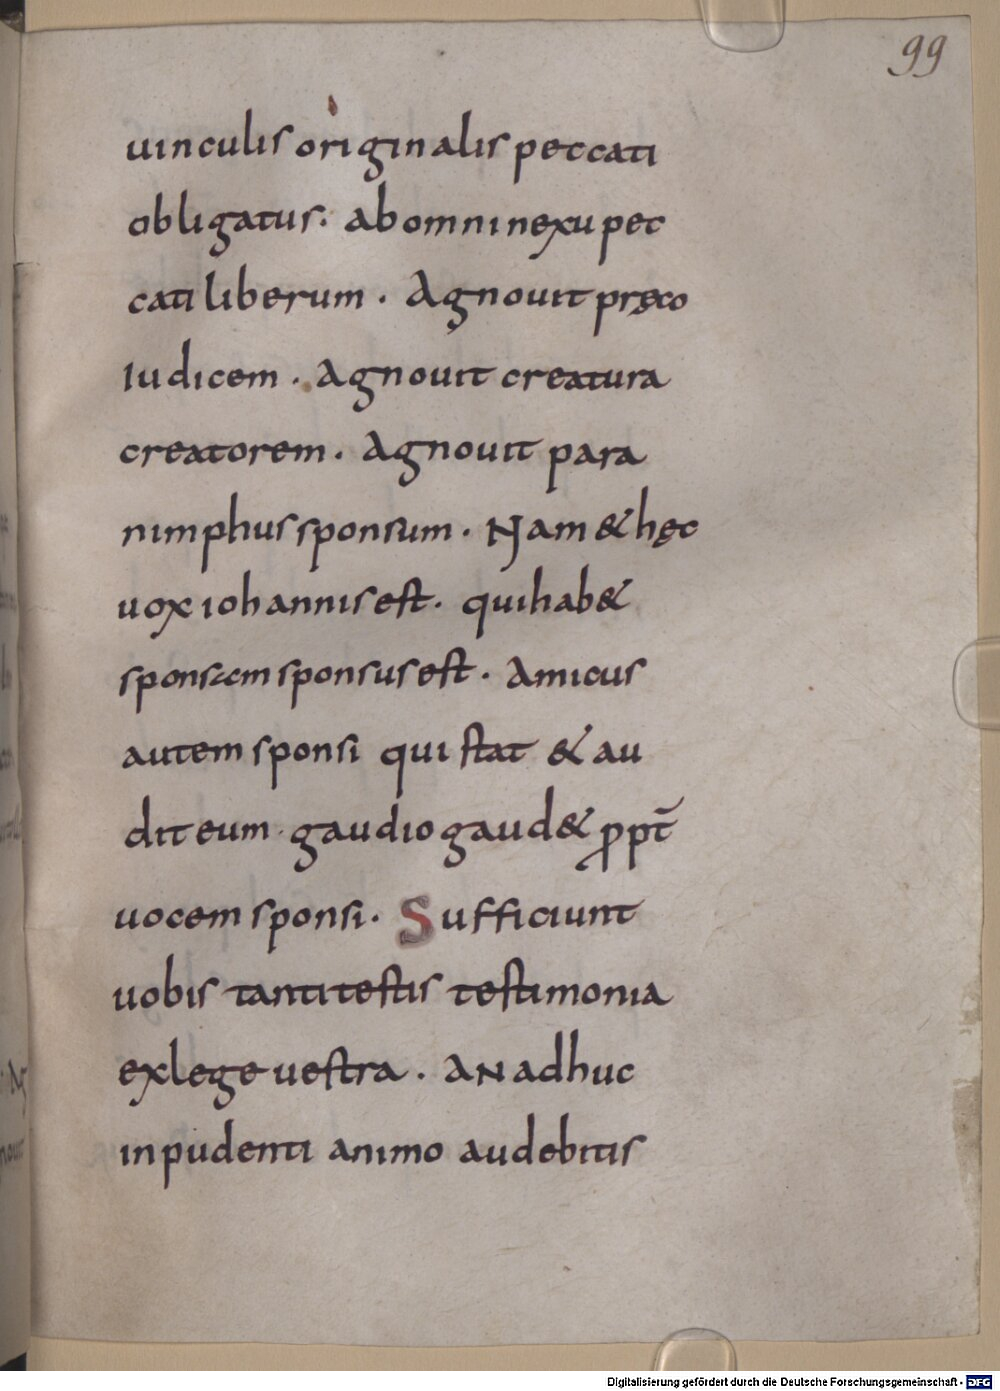 99
uinculis originalis peccati
obligatus: ab omni nexu pec
cati liberum . Agnouit pręco
Iudicem . Agnouit creatura
creatorem . Agnouit para
nimphus sponsum . Nam & hęc
uox iohannis est . qui hab&
sponsam sponsus est . Amicus
autem sponsi qui stat & au
dit eum . gaudio gaud& ꝓpt̄
uocem sponsi . Sufficiunt
uobis tanti testis testimonia
ex lege uestra . AN adhuc
inpudenti animo audebitis
Digitalisierung gefördert durch die Deutsche Forschungsgemeinschaft - DFG